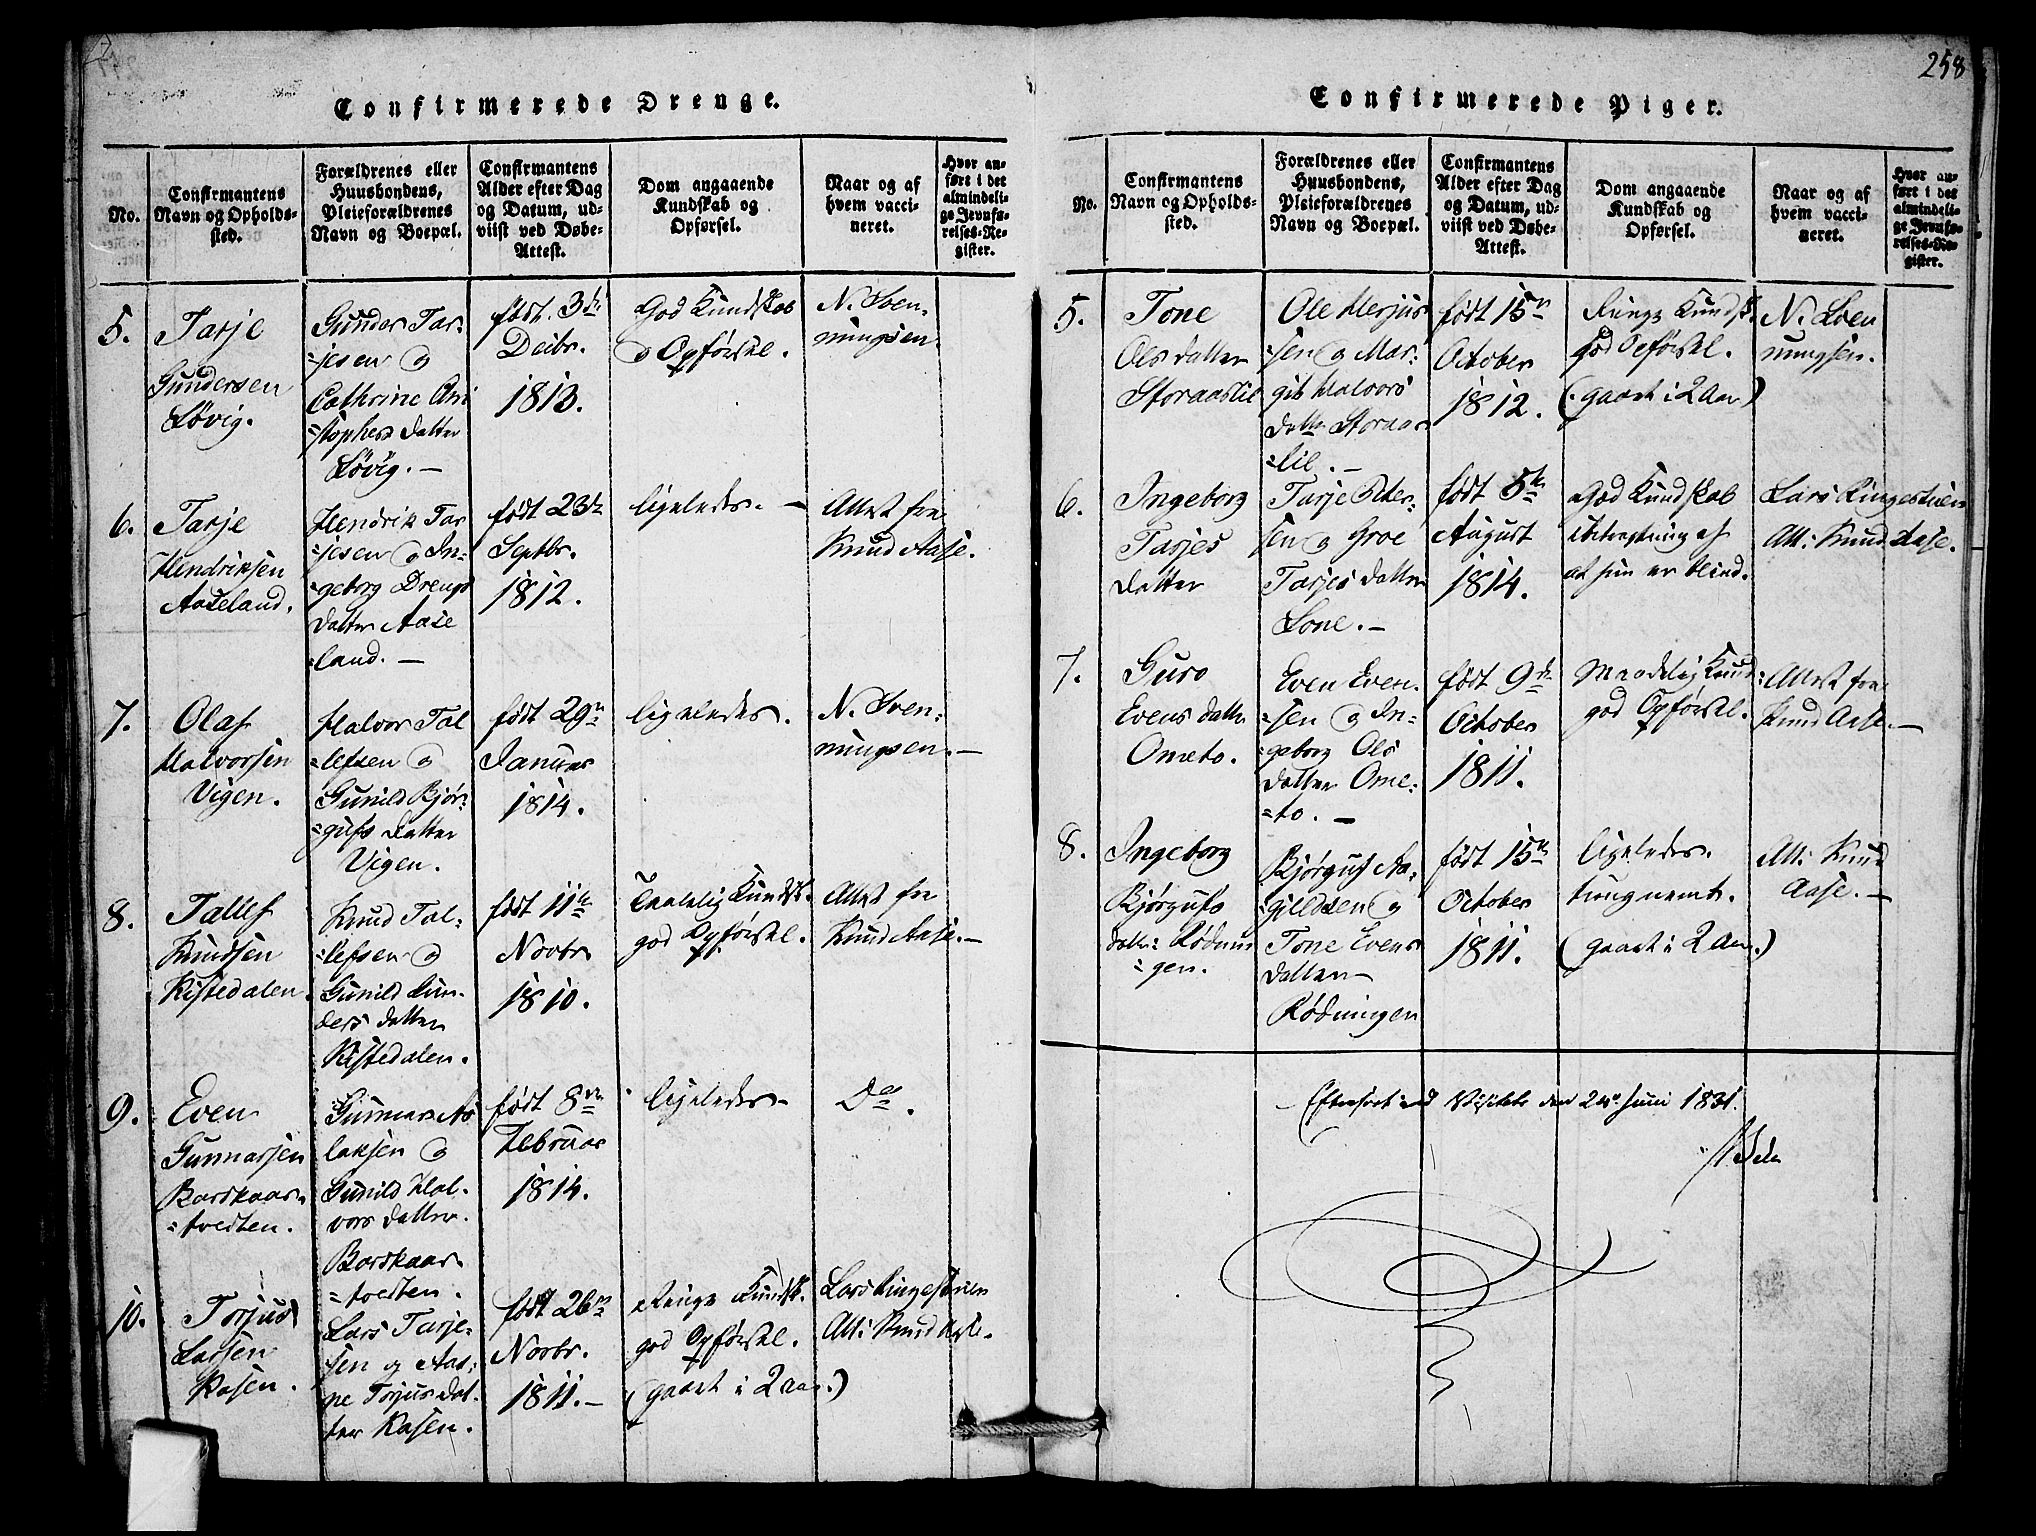 258
Confirmerede Drenge.
No.
Confirmantens
Navn og Opholds-
sted.
Forældrenes eller
Huusbondens,
Pleieforældrenes
Navn og Boepæl.
Confirmantens
Alder efter Dag
og Datum, ud-
viist ved Døbe-
Attest.
Dom angaaende
Kundskab og
Opførsel.
Naar og af
hvem vacci-
neret.
Hvor an-
ført i det
almindeli-
ge Jevnfø-
relses-Re-
gister.
5.
Tarje
Gundersen
Løvig.
Gunder Tar-
=jesen og
Cathrine
=stophers datter
Løvig. —
født. 3die
Decbr.
1813.
God Kundskab
og Opførsel.
N. Sven-
ningsen.
6.
Tarje
Hendriksen
Aaseland.
Hendrik Tar
=jesen og In-
=geborg Drengs
datter Aase
=land. —
født 23de
Septbr.
1812.
ligeledes. —
Attest fra
Knud Aase.
7.
Olaf
Halvorsen
Vigen.
Halvor Tal
=lefsen og
Gunild Bjør-
=gufs datter
Vigen.
født 29de
Januar
1814.
ligeledes.
N. Sven-
ningsen. —
8.
Tallef
Knudsen
Kistedalen.
Knud Tal-
=lefsen og
Gunild Gun-
ders datter
Kistedalen.
født 11te
Novbr
1810.
Taalelig Kundsk.
god Opførsel.
Attest fra
Knud Aase. —
9.
Even
Gunnarsen
Barskaar-
=tvedten.
Gunnar As
laksen og
Gunild Hal-
vors datter.
Barskaar-
=tvedten.
født 8de
Februar
1814.
ligeledes —
Do.
10.
Torjus
Larsen
Rosen.
Lars Tarje-
sen og Aas-
ne Torjus dat-
ter Rosen.
født 26de
Novbr.
1811. —
Ringe Kundsk.
god Opførsel.
(gaaet i 2 aar.)
Lars Ringestuen
Att: Knud Aase.
Confirmerede Piger.
No.
Confirmantens
Navn og Opholds-
sted.
Forældrenes eller
Huusbondens,
Pleieforældrenes
Navn og Boepæl.
Confirmantens
Alder efter Dag
og Datum, ud-
viist ved Døbe-
Attest.
Dom angaaende
Kundskab og
Opførsel.
Naar og af
hvem vacci-
neret.
Hvor an-
ført i det
almindeli-
ge Jevnfø-
relses-Re-
gister.
5.
Tone
Ols datter
Storaaslil
Ole Herjus
=sen og Mar-
git Halvors
datter Storaas
=lil. —
født 15de
October
1812.
Ringe Kundsk.
god Opførsel.
(gaaet i 2 Aar)
N. Sven
ningsen.
6.
Ingeborg
Tarjes
datter
Tarje Peter-
sen og Groe
Tarjes datter
Lone. —
født 5te
August
1814.
God Kundskab
i betragtning af
at hun er blind.
Lars Ringestuen
Att: Knud Aase.
7.
Guro
Evens datter
Ometo.
Even Even-
=sen og In-
=geborg Ols
datter Ome-
=to. —
født 9de
October
1811.
Maadelig Kund-
god Opførsel.
Attest fra
Knud Aase. —
8.
Ingeborg
Bjørgufs
datter Rødnin
=gen.
Bjørguf Aa-
=gildsen og
Tone Evens
datter —
Rødningen
født 15de
October
1811.
ligeledes.
tungnemt.
(gaaet i 2 Aar.)
Att: Knud
Aase. —
— Efterseet ved Visitats den 24de Juni 1831.